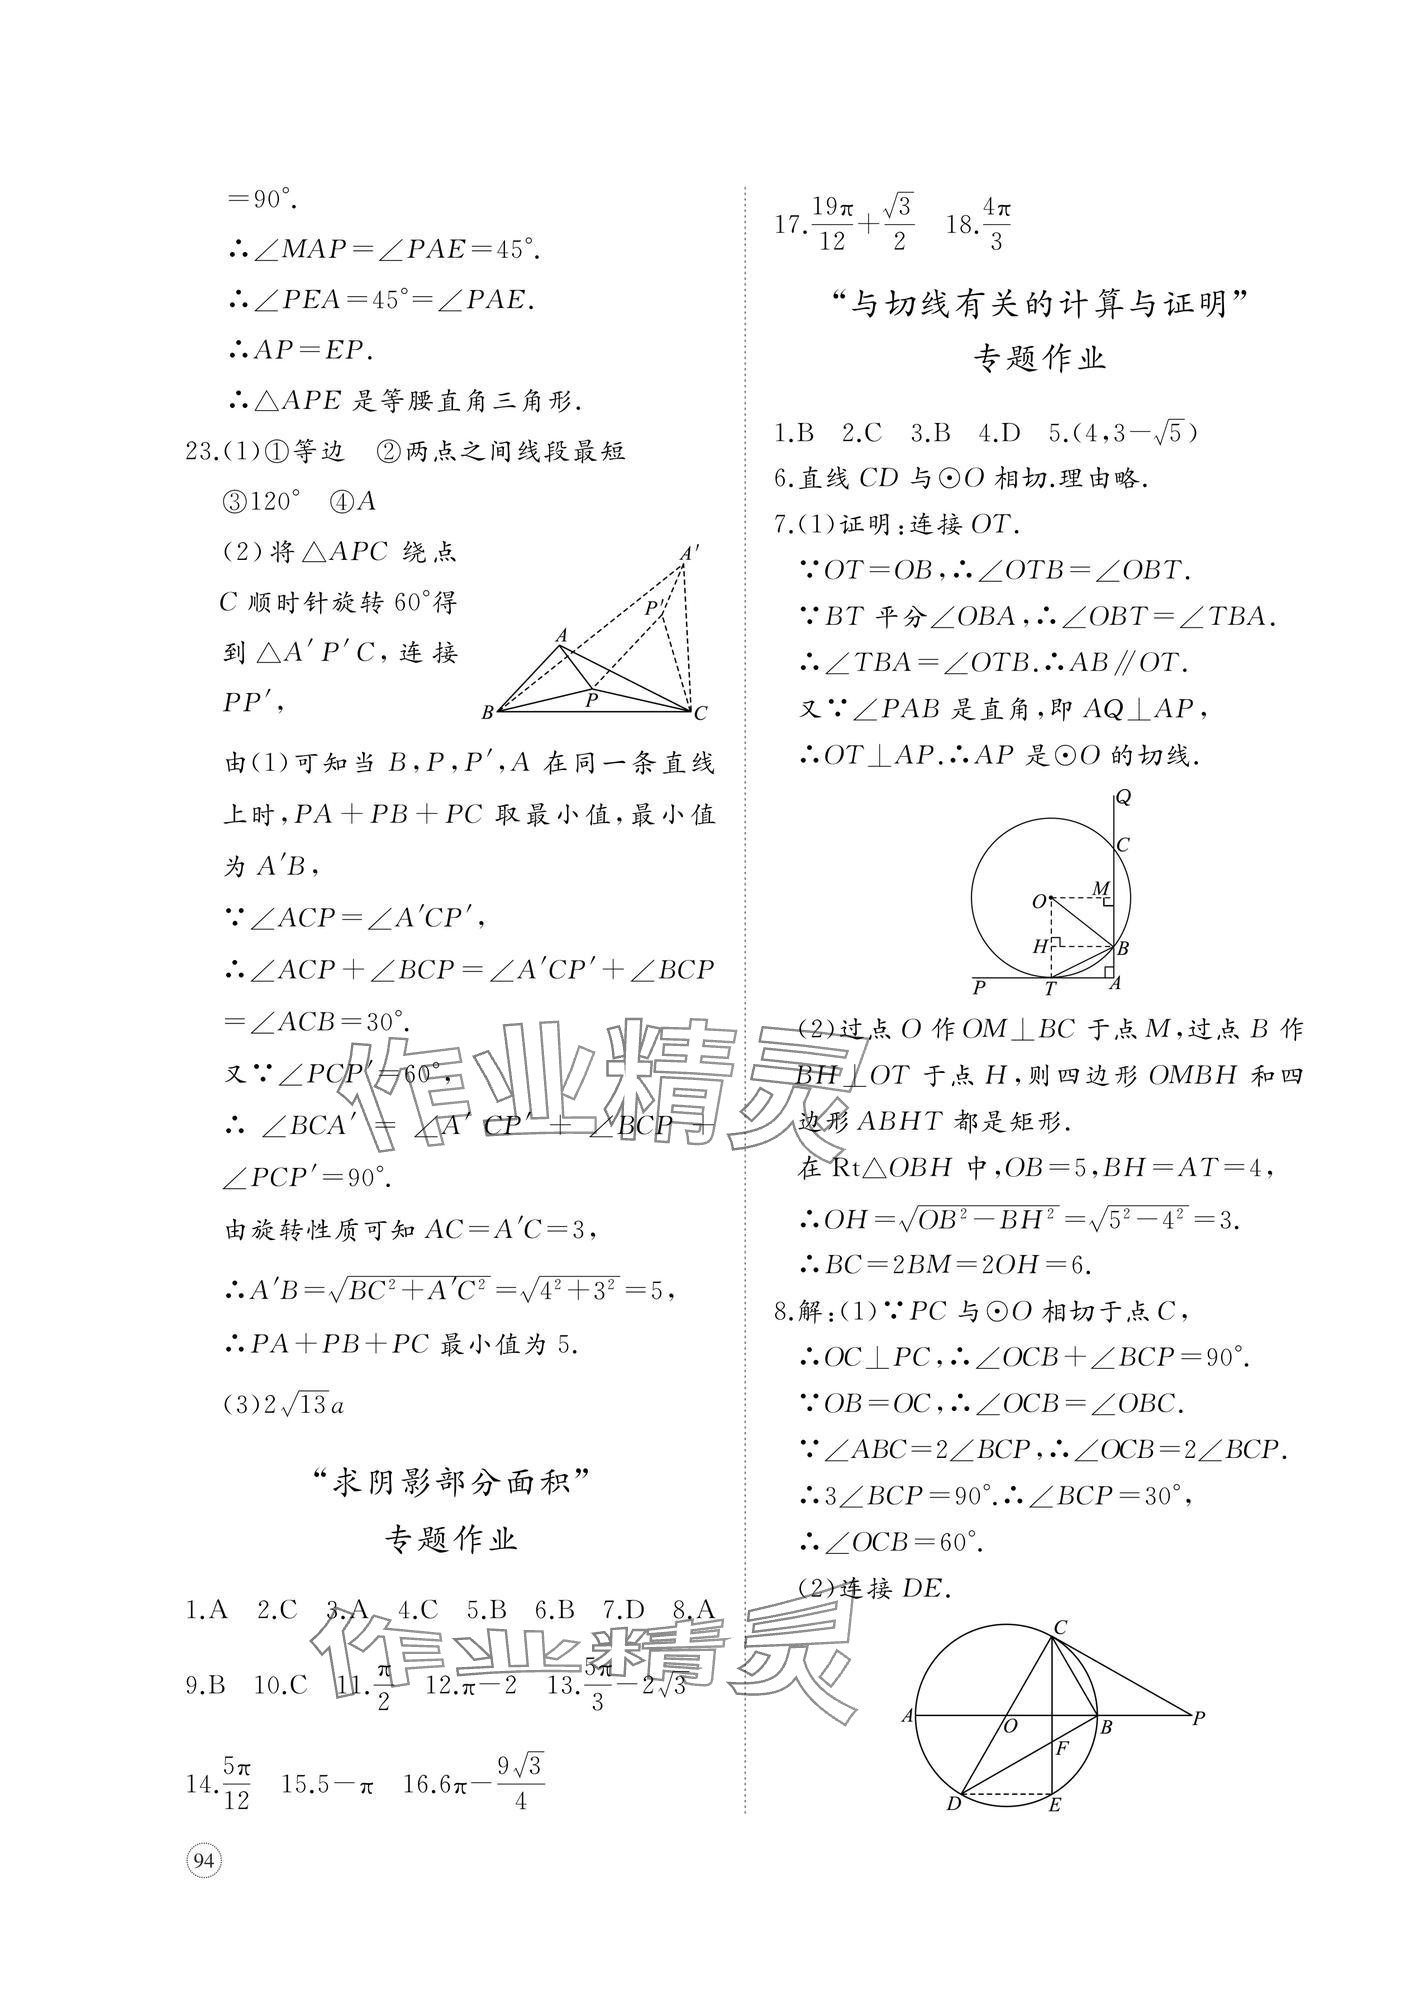 =90°.
∴∠MAP=∠PAE=45°.
∴∠PEA=45°=∠PAE.
∴AP=EP.
∴△APE 是等腰直角三角形.
23.(1)①等边 ②两点之间线段最短
③120° ④A
(2)将△APC 绕点
C 顺时针旋转 60°得
到△A′P′C,连接
PP′,
A′
P′
A
P
B
C
由(1)可知当 B,P,P′,A 在同一条直线
上时,PA+PB+PC 取最小值,最小值
为 A′B,
∵∠ACP=∠A′CP′,
∴∠ACP+∠BCP=∠A′CP′+∠BCP
=∠ACB=30°.
又∵∠PCP′=60°,
∴ ∠BCA′ = ∠A′CP′ + ∠BCP +
∠PCP′=90°.
由旋转性质可知 AC=A′C=3,
∴A′B=√(BC²+A′C²)=√(4²+3²)=5,
∴PA+PB+PC 最小值为 5.
(3)2√13a
“求阴影部分面积”
专题作业
1.A 2.C 3.A 4.C 5.B 6.B 7.D 8.A
9.B 10.C 11.π/2 12.π-2 13.5π/3-2√3
14.5π/12 15.5-π 16.6π-9√3/4
94
17.19π/12+√3/2 18.4π/3
“与切线有关的计算与证明”
专题作业
1.B 2.C 3.B 4.D 5.(4,3-√5)
6.直线 CD 与⊙O 相切.理由略.
7.(1)证明:连接 OT.
∵OT=OB,∴∠OTB=∠OBT.
∵BT 平分∠OBA,∴∠OBT=∠TBA.
∴∠TBA=∠OTB.∴AB∥OT.
又∵∠PAB 是直角,即 AQ⊥AP,
∴OT⊥AP.∴AP 是⊙O 的切线.
Q
C
M
O
H
B
P
T
A
(2)过点 O 作 OM⊥BC 于点 M,过点 B 作
BH⊥OT 于点 H,则四边形 OMBH 和四
边形 ABHT 都是矩形.
在 Rt△OBH 中,OB=5,BH=AT=4,
∴OH=√(OB²-BH²)=√(5²-4²)=3.
∴BC=2BM=2OH=6.
8.解:(1)∵PC 与⊙O 相切于点 C,
∴OC⊥PC,∴∠OCB+∠BCP=90°.
∵OB=OC,∴∠OCB=∠OBC.
∵∠ABC=2∠BCP,∴∠OCB=2∠BCP.
∴3∠BCP=90°.∴∠BCP=30°,
∴∠OCB=60°.
(2)连接 DE.
C
A
O
B
P
F
D
E
作业精灵
作业精灵